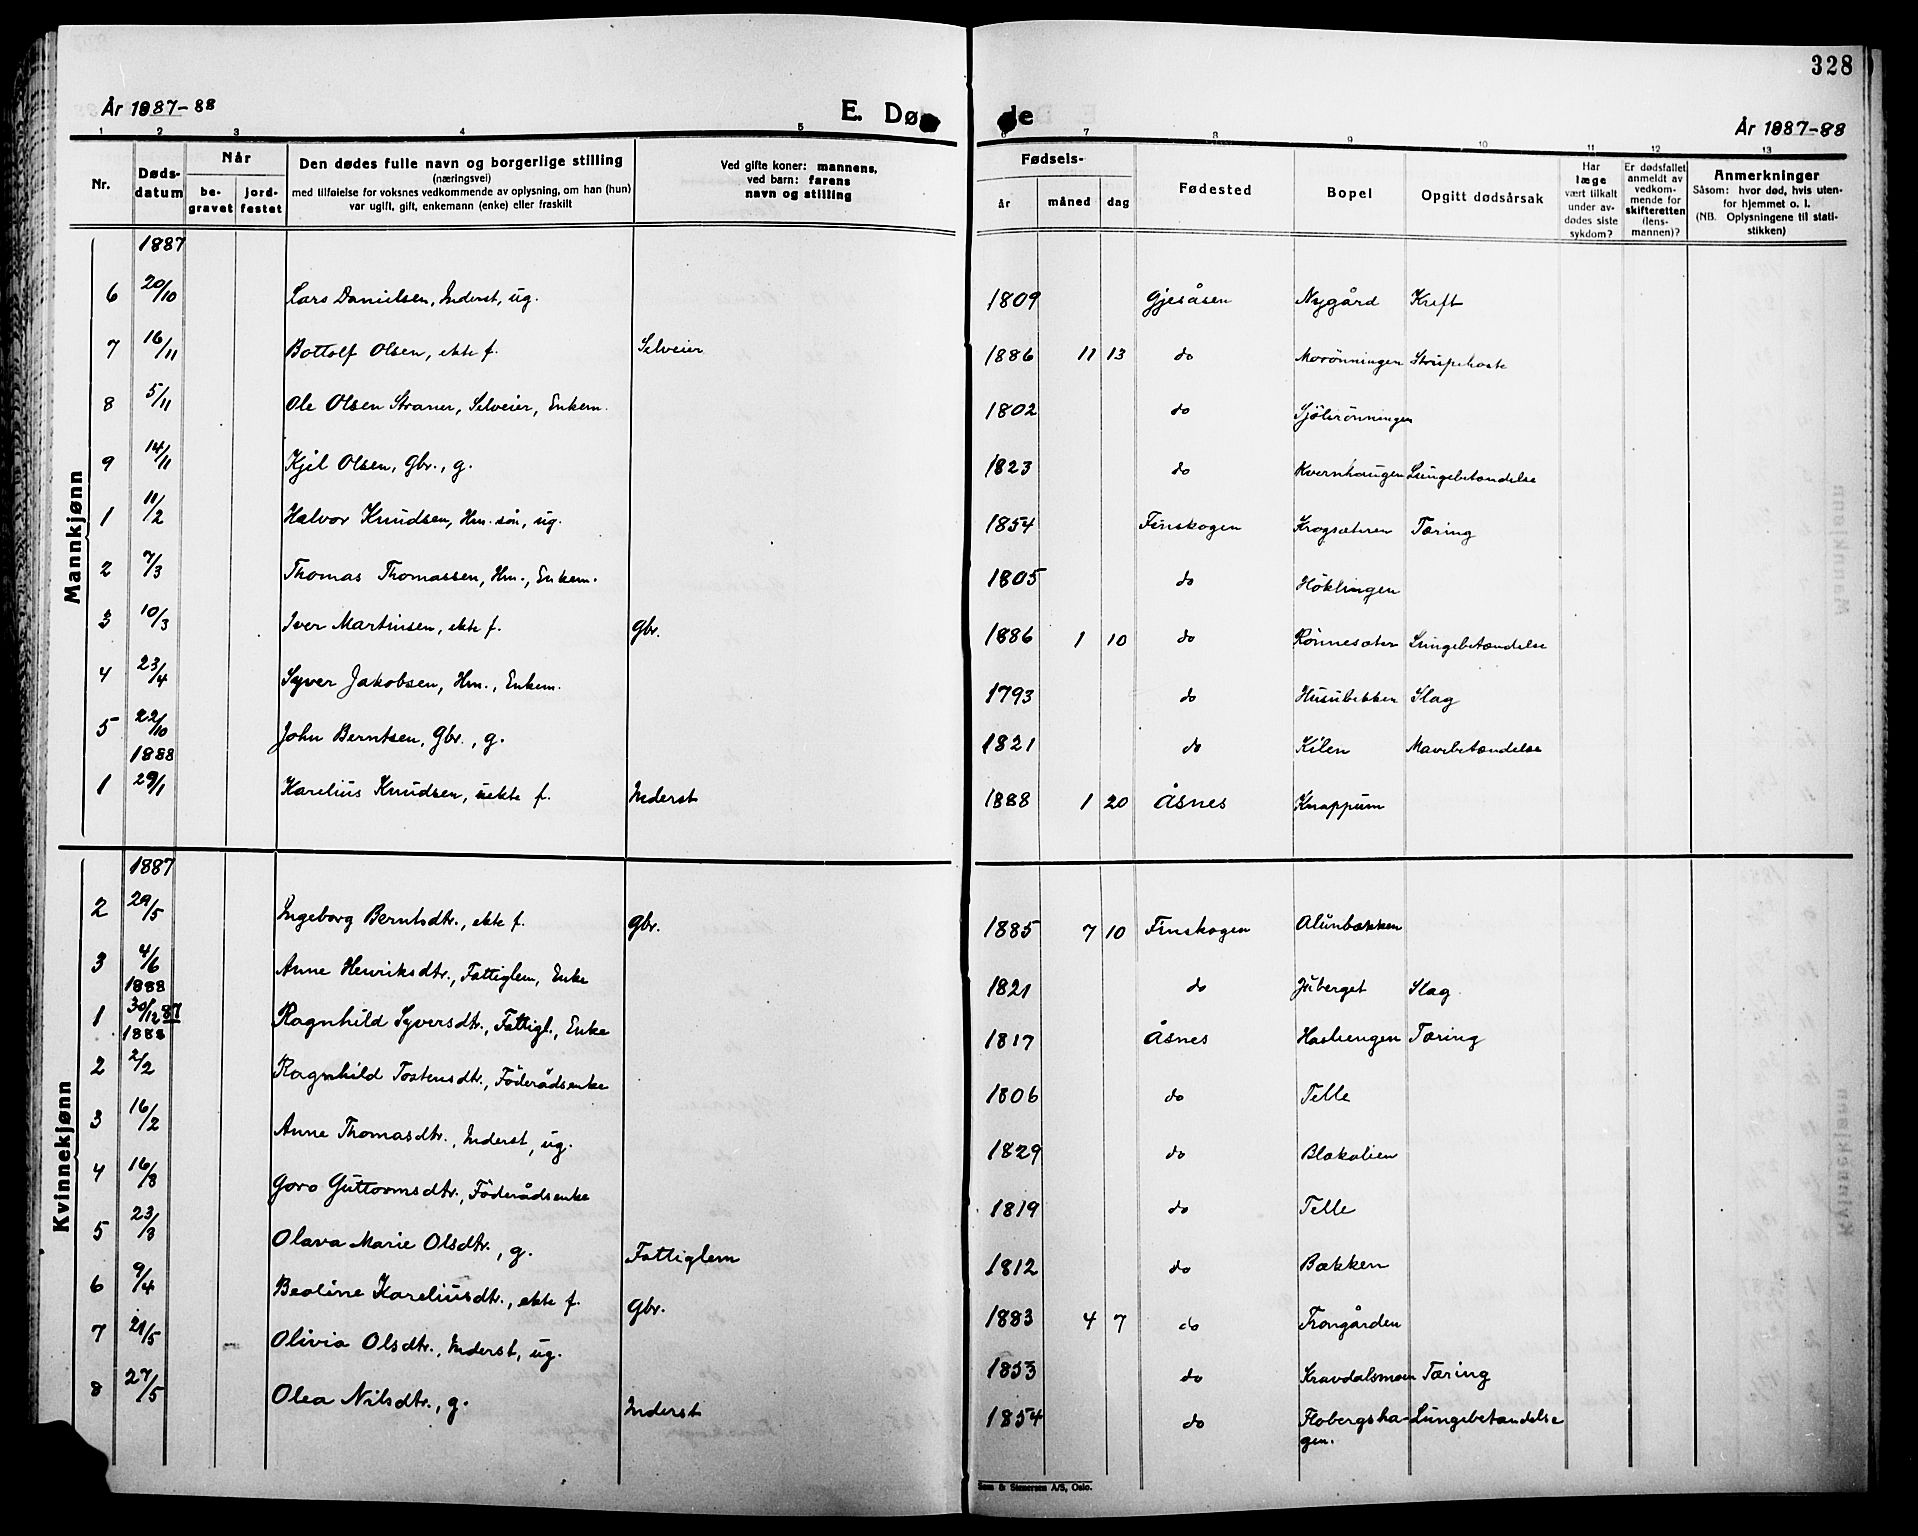 328
År 1887-88
E. Dø
de
År 1887-88
1 2 3 4 5 6 7 8 9 10 11 12 13
Nr.
Døds-
datum
Når
be-
gravet
jord-
festet
Den dødes fulle navn og borgerlige stilling
(næringsvei)
med tilføielse for voksnes vedkommende av oplysning, om han (hun)
var ugift, gift, enkemann (enke) eller fraskilt
Ved gifte koner: mannens,
ved barn: farens
navn og stilling
Fødsels-
år
måned
dag
Fødested
Bopel
Opgitt dødsårsak
Har
læge
vært tilkalt
under av-
dødes siste
sykdom?
Er dødsfallet
anmeldt av
vedkom-
mende for
skifteretten
(lens-
mannen)?
Anmerkninger
Såsom: hvor død, hvis uten-
for hjemmet o. l.
(NB. Oplysningene til stati-
stikken)
Mannkjønn
1887
6 20/10 Lars Danielsen, Inderst, ug. 1809 Gjesåsen Nygård Kreft
7 16/11 Bottolf Olsen, ekte f. Selveier 1886 11 13 do Morönningen Strupehoste
8 5/11 Ole Olsen Straner, Selveier, Enkem. 1802 do Sjölirönningen
9 14/11 Kjil Olsen, Gbr., g. 1823 do Kvernhaugen Lungebetændelse
1 11/2 Halvor Knudsen, Hm. sön, ug. 1854 Finskogen Krogsæteren Tæring
2 7/3 Thomas Thomassen, Hm., Enkem. 1805 do Höklingen
3 10/3 Iver Martinsen, ekte f. Gbr. 1886 1 10 do Rönnesæter Lungebetændelse
4 23/4 Syver Jakobsen, Hm., Enkem. 1793 do Husubekken Slag
5 22/10 John Berntsen, Gbr., g. 1821 do Kilen Mavebetændelse
1888
1 29/1 Karelius Knudsen, uekte f. Inderst 1888 1 20 Åsnes Knappum
Kvinnekjønn
1887
2 29/5 Ingeborg Berntsdtr., ekte f. Gbr. 1885 7 10 Finskogen Alunbækken
3 4/6 Anne Henriksdtr., Fattiglem, Enke 1821 do Juberget Slag
1888
1 30/12 87 Ragnhild Syversdtr., Fattigl., Enke 1817 Åsnes Hasleengen Tæring
1888
2 2/2 Ragnhild Tostensdtr., Föderådsenke 1806 do Telle
3 16/2 Anne Thomasdtr., Inderst, ug. 1829 do Blækalien
4 16/3 Goro Guttormsdtr., Föderådsenke 1819 do Telle
5 23/3 Olava Marie Olsdtr., g. Fattiglem 1812 do Bækken
6 9/4 Beoline Kareliusdtr., ekte f. Gbr. 1883 4 7 do Frongården
7 21/5 Olivia Olsdtr., Inderst, ug. 1853 do Kravdalsmoen Tæring
8 27/5 Olea Nilsdtr., g. Inderst 1854 do Flobergsha- Lungebetændelse
gen.
Sem & Stenersen A/S, Oslo.